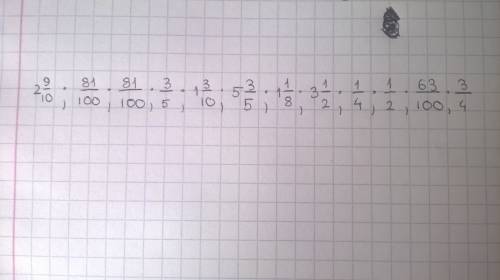 2 9/10 ; 81/100 ; 81/100 ; 3/5 ; 1 3/10 ; 5 3/5 ; 1 1/8 ; 3 1/2 ; 1/4 ; 1/2 ; 63/100 ; 3/4